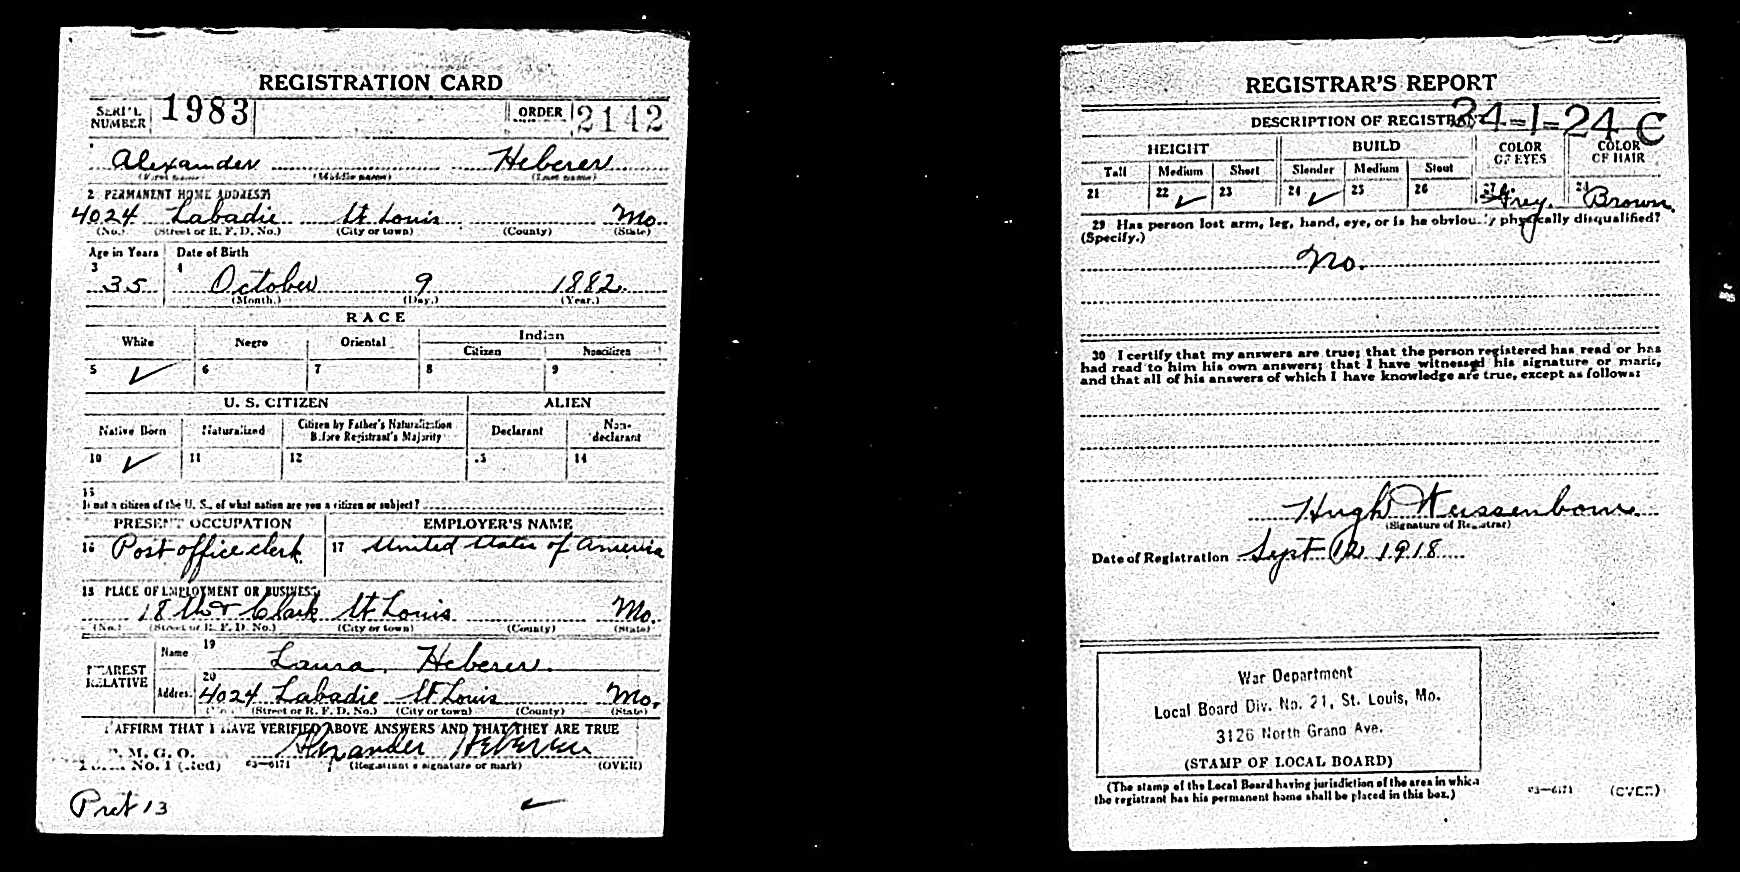 REGISTRATION CARD
SERIAL NUMBER 1983 ORDER 2142
1 Alexander Heberer
(First name) (Middle name) (Last name)
2 PERMANENT HOME ADDRESS:
4024 Labadie St Louis Mo
(No.) (Street or R. F. D. No.) (City or town) (County) (State)
Age in Years Date of Birth
3 35 4 October 9 1882
(Month.) (Day.) (Year.)
RACE
White Negro Oriental Indian
Citizen Noncitizen
5 ✓ 6 7 8 9
U. S. CITIZEN ALIEN
Native Born Naturalized Citizen by Father's Naturalization Before Registrant's Majority Declarant Non-declarant
10 ✓ 11 12 13 14
15
If not a citizen of the U. S., of what nation are you a citizen or subject?
PRESENT OCCUPATION EMPLOYER'S NAME
16 Post office clerk 17 United States of America
18 PLACE OF EMPLOYMENT OR BUSINESS:
18 th & Clark St Louis Mo.
(No.) (Street or R. F. D. No.) (City or town) (County) (State)
NEAREST RELATIVE
Name 19 Laura Heberer.
Address 20 4024 Labadie St Louis Mo.
(No.) (Street or R. F. D. No.) (City or town) (County) (State)
I AFFIRM THAT I HAVE VERIFIED ABOVE ANSWERS AND THAT THEY ARE TRUE
P. M. G. O.
Form No. 1 (Red) 03—6171 Alexander Heberer
(Registrant's signature or mark) (OVER)
Pret 13 ✓
REGISTRAR'S REPORT
24-1-24 C
DESCRIPTION OF REGISTRANT
HEIGHT BUILD COLOR OF EYES COLOR OF HAIR
Tall Medium Short Slender Medium Stout
21 22 ✓ 23 24 ✓ 25 26 27 Grey. 28 Brown
29 Has person lost arm, leg, hand, eye, or is he obviously physically disqualified?
(Specify.)
No.
30 I certify that my answers are true; that the person registered has read or has
had read to him his own answers; that I have witnessed his signature or mark,
and that all of his answers of which I have knowledge are true, except as follows:
Hugh Weissenborn
(Signature of Registrar)
Date of Registration Sept 12 1918
War Department
Local Board Div. No. 21, St. Louis, Mo.
3126 North Grand Ave.
(STAMP OF LOCAL BOARD)
(The stamp of the Local Board having jurisdiction of the area in which
the registrant has his permanent home shall be placed in this box.)
03—6171 (OVER)